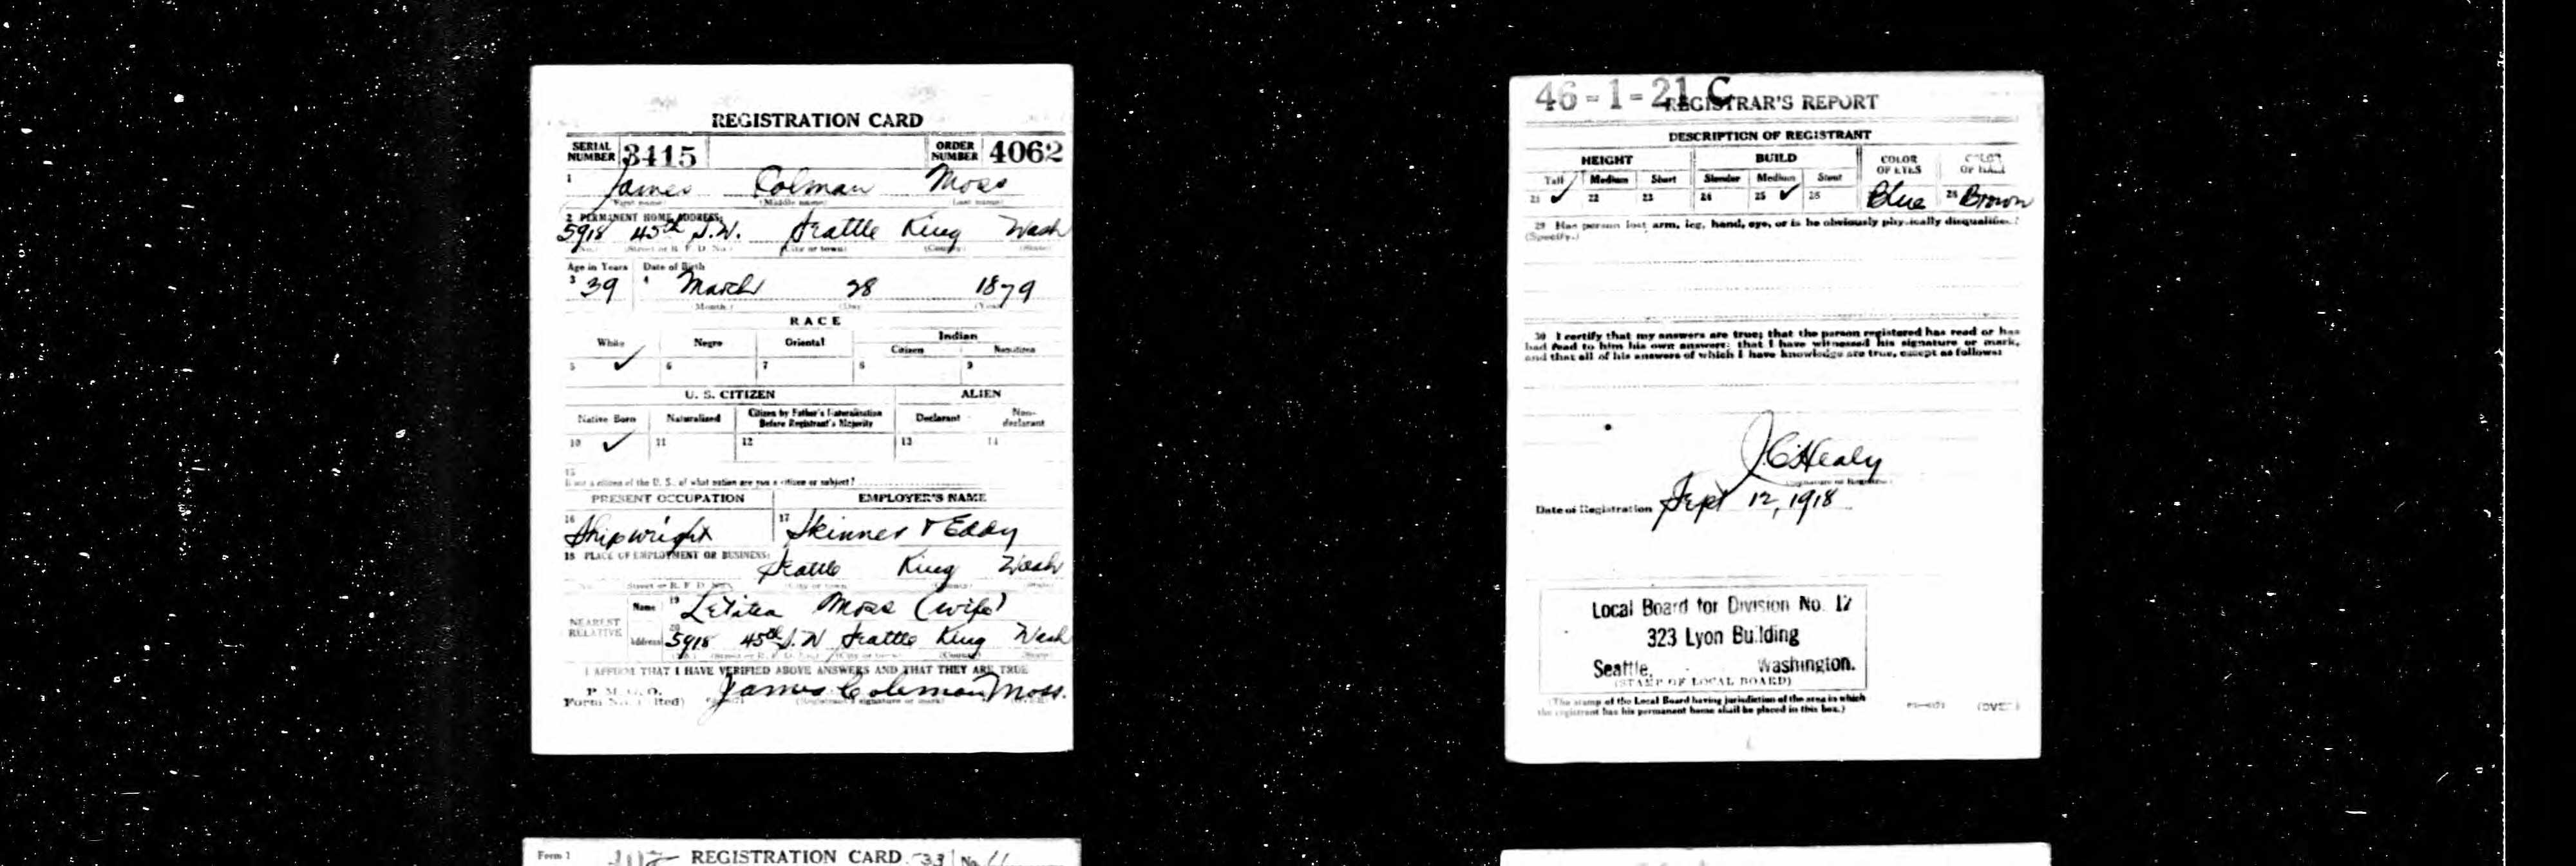 REGISTRATION CARD
SERIAL NUMBER 3415 ORDER NUMBER 4062
1 James Colman Moss
(First name) (Middle name) (Last name)
2 PERMANENT HOME ADDRESS:
5918 45th S.W. Seattle King Wash
(No.) (Street or R. F. D. No.) (City or town) (County) (State)
Age in Years Date of Birth
3 39 4 March 28 1879
(Month) (Day) (Year)
RACE
White Negro Oriental Indian
Citizen Noncitizen
5 ✓ 6 7 8 9
U. S. CITIZEN ALIEN
Native Born Naturalized Citizen by Father's Naturalization Before Registrant's Majority Declarant Non-declarant
10 ✓ 11 12 13 14
15
If not a citizen of the U. S., of what nation are you a citizen or subject?
PRESENT OCCUPATION EMPLOYER'S NAME
16 Shipwright 17 Skinner & Eddy
18 PLACE OF EMPLOYMENT OR BUSINESS:
Seattle King Wash
(No.) (Street or R. F. D. No.) (City or town) (County) (State)
NEAREST RELATIVE Name 19 Letitea Moss (wife)
Address 20 5918 45th S.W Seattle King Wash
I AFFIRM THAT I HAVE VERIFIED ABOVE ANSWERS AND THAT THEY ARE TRUE
P. M. G. O.
Form No. 1 James Coleman Moss.
(Registrant's signature or mark)
Form 1 REGISTRATION CARD 33 No. 11
46-1-21 C
REGISTRAR'S REPORT
DESCRIPTION OF REGISTRANT
HEIGHT BUILD COLOR OF EYES COLOR OF HAIR
Tall Medium Short Slender Medium Stout
21 ✓ 22 23 24 25 ✓ 26 Blue 28 Brown
29 Has person lost arm, leg, hand, eye, or is he obviously physically disqualified?
(Specify.)
30 I certify that my answers are true; that the person registered has read or has
had read to him his own answers; that I have witnessed his signature or mark,
and that all of his answers of which I have knowledge are true, except as follows:
J. C. Healy
(Signature of Registrar)
Date of Registration Sept 12, 1918
Local Board for Division No. 12
323 Lyon Building
Seattle, Washington.
(STAMP OF LOCAL BOARD)
(The stamp of the Local Board having jurisdiction of the area in which
the registrant has his permanent home shall be placed in this box.)
(OVER)